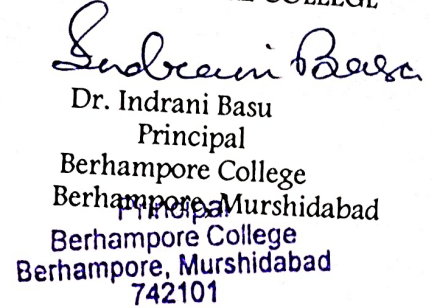 COLLEGE
Indrani Basu
Dr. Indrani Basu
Principal
Berhampore College
Berhampore, Murshidabad
Principal
Berhampore College
Berhampore, Murshidabad
742101